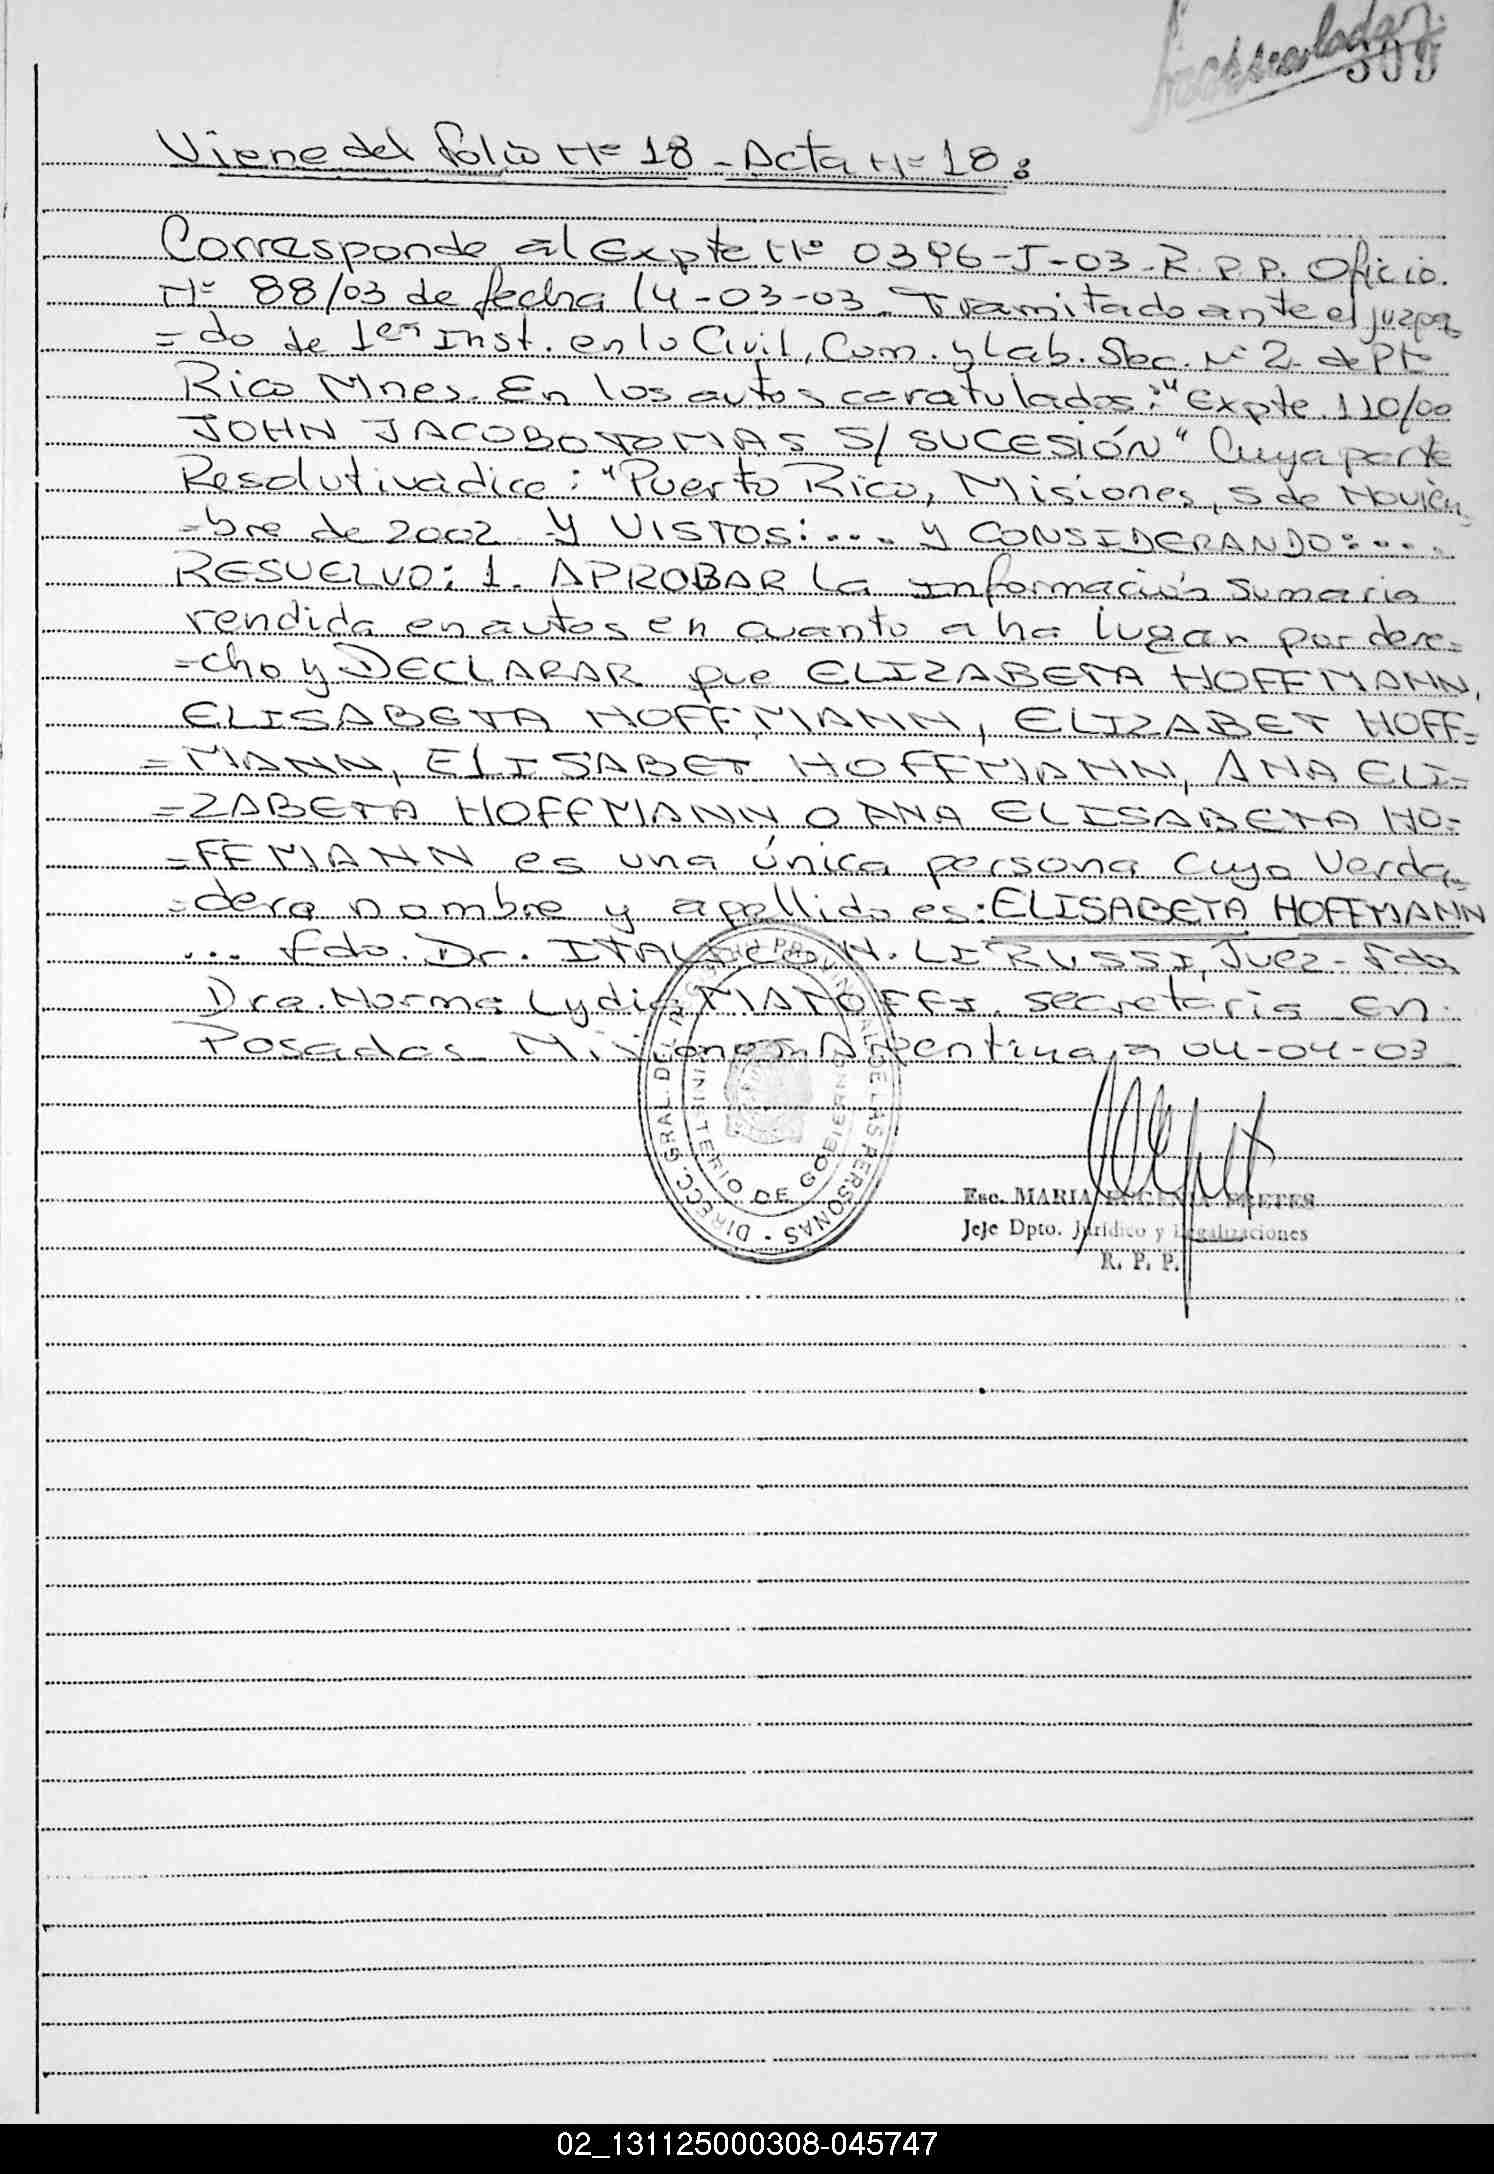 309
Viene del folio Nº 18 - Acta Nº 18:
Corresponde al Expte Nº 0396-J-03-R.P.P. Oficio.
Nº 88/03 de fecha 14-03-03. Tramitado ante el juzga
=do de 1era Inst. en lo Civil, Com. y Lab. Sec. Nº 2. de Pto
Rico Mnes. En los autos caratulados: "Expte 110/00
JOHN JACOBO TOMAS S/ SUCESIÓN" Cuya parte
Resolutiva dice: "Puerto Rico, Misiones, 5 de Noviem
=bre de 2002. Y VISTOS:.... y CONSIDERANDO:....
RESUELVO: 1. APROBAR la Información Sumaria
rendida en autos en cuanto a ha lugar por dere=
=cho y DECLARAR que ELIZABETA HOFFMANN,
ELISABETA HOFFMANN, ELIZABET HOFF=
=MANN, ELISABET HOFFMANN, ANA ELI=
=ZABETA HOFFMANN O ANA ELISABETA HO=
=FFMANN es una única persona Cuyo Verda=
=dero nombre y apellido es: ELISABETA HOFFMANN
... fdo. Dr. ITALICO N. LIRUSSI, Juez - fda
Dra. Norma Lydia MANOFFI. secretaria en
Posadas Misiones Argentina, a 04-04-03
DIRECC. GRAL. DEL REGISTRO PROVINCIAL DE LAS PERSONAS
MINISTERIO DE GOBIERNO
Esc. MARIA EUGENIA PRETES
Jefe Dpto. Jurídico y Legalizaciones
R. P. P.
02_131125000308-045747